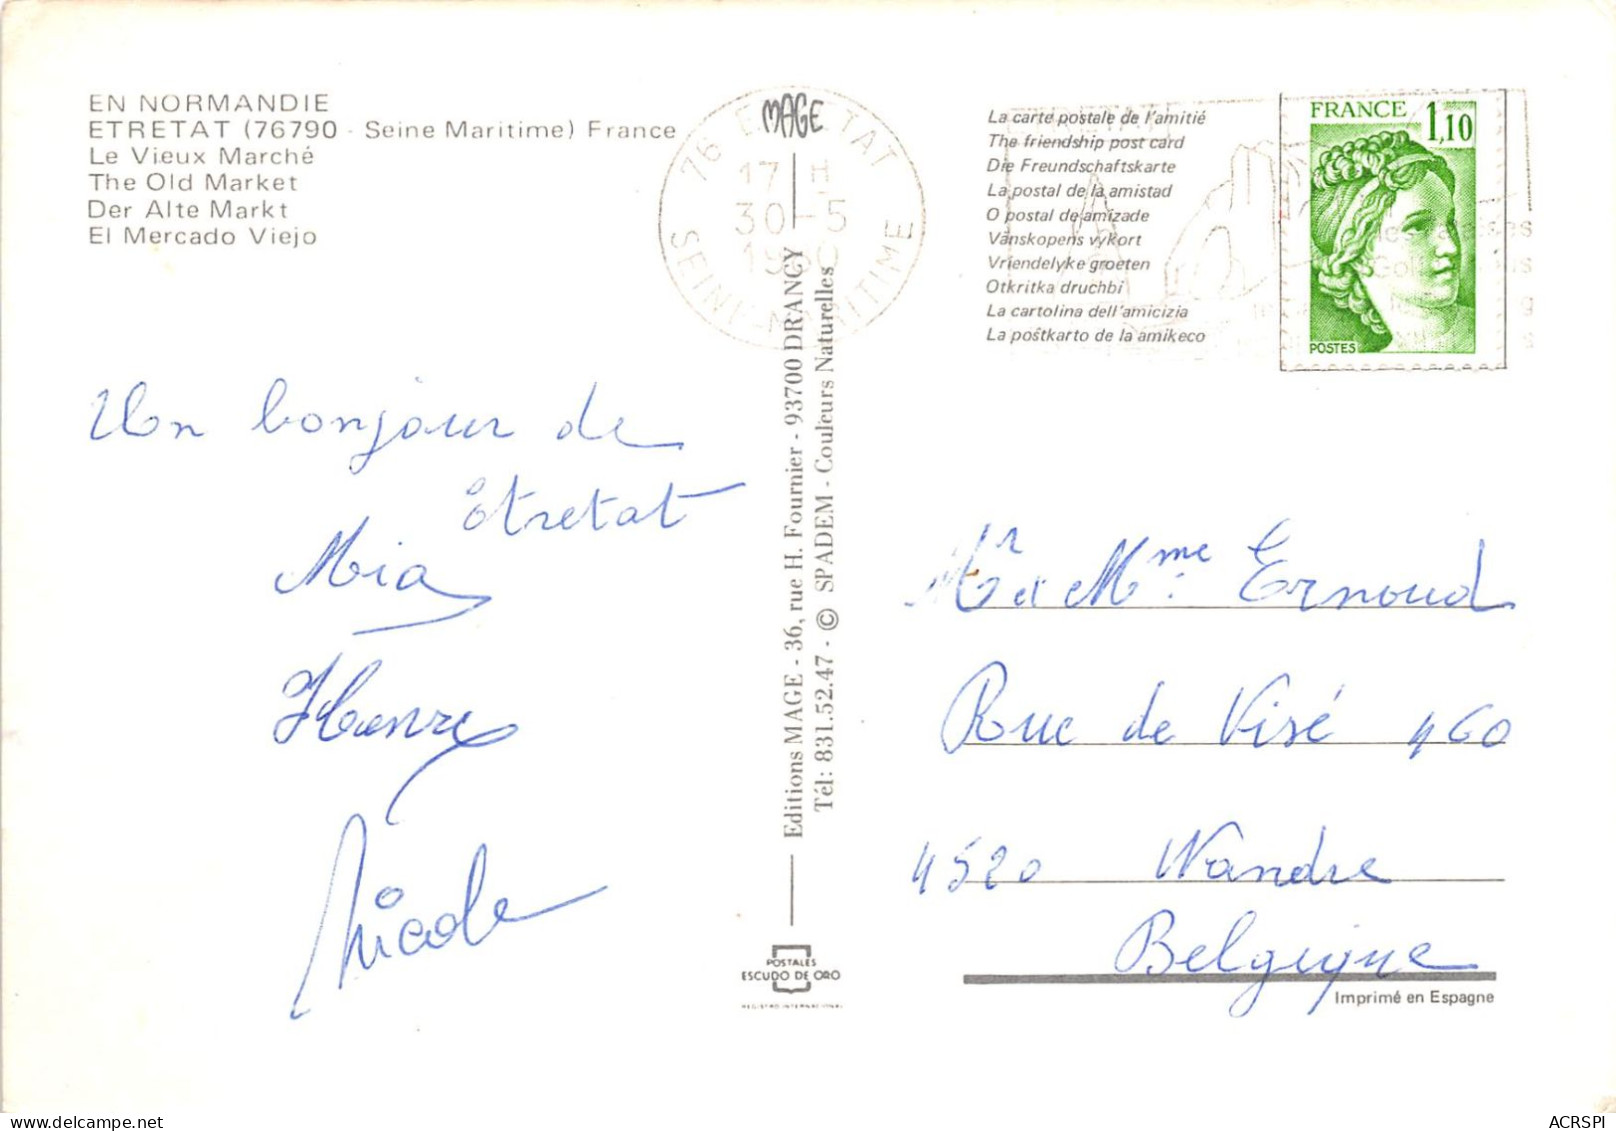 EN NORMANDIE
ETRETAT (76790 - Seine Maritime) France
Le Vieux Marché
The Old Market
Der Alte Markt
El Mercado Viejo
MAGE
76 ETRETAT
17 H
30-5
1980
SEINE-MARITIME
La carte postale de l'amitié
The friendship post card
Die Freundschaftskarte
La postal de la amistad
O postal de amizade
Vänskopens vykort
Vriendelyke groeten
Otkritka druchbi
La cartolina dell'amicizia
La poŝtkarto de la amikeco
FRANCE 1,10
POSTES
Un bonjour de
Etretat
Mia
Henri
Nicole
Editions MAGE - 36, rue H. Fournier - 93700 DRANCY
Tél: 831.52.47 - © SPADEM - Couleurs Naturelles
POSTALES
ESCUDO DE ORO
REGISTRO INTERNACIONAL
Mr et Mme Ernoud
Rue de Visé 460
4520 Wandre
Belgique
Imprimé en Espagne
ACRSPI